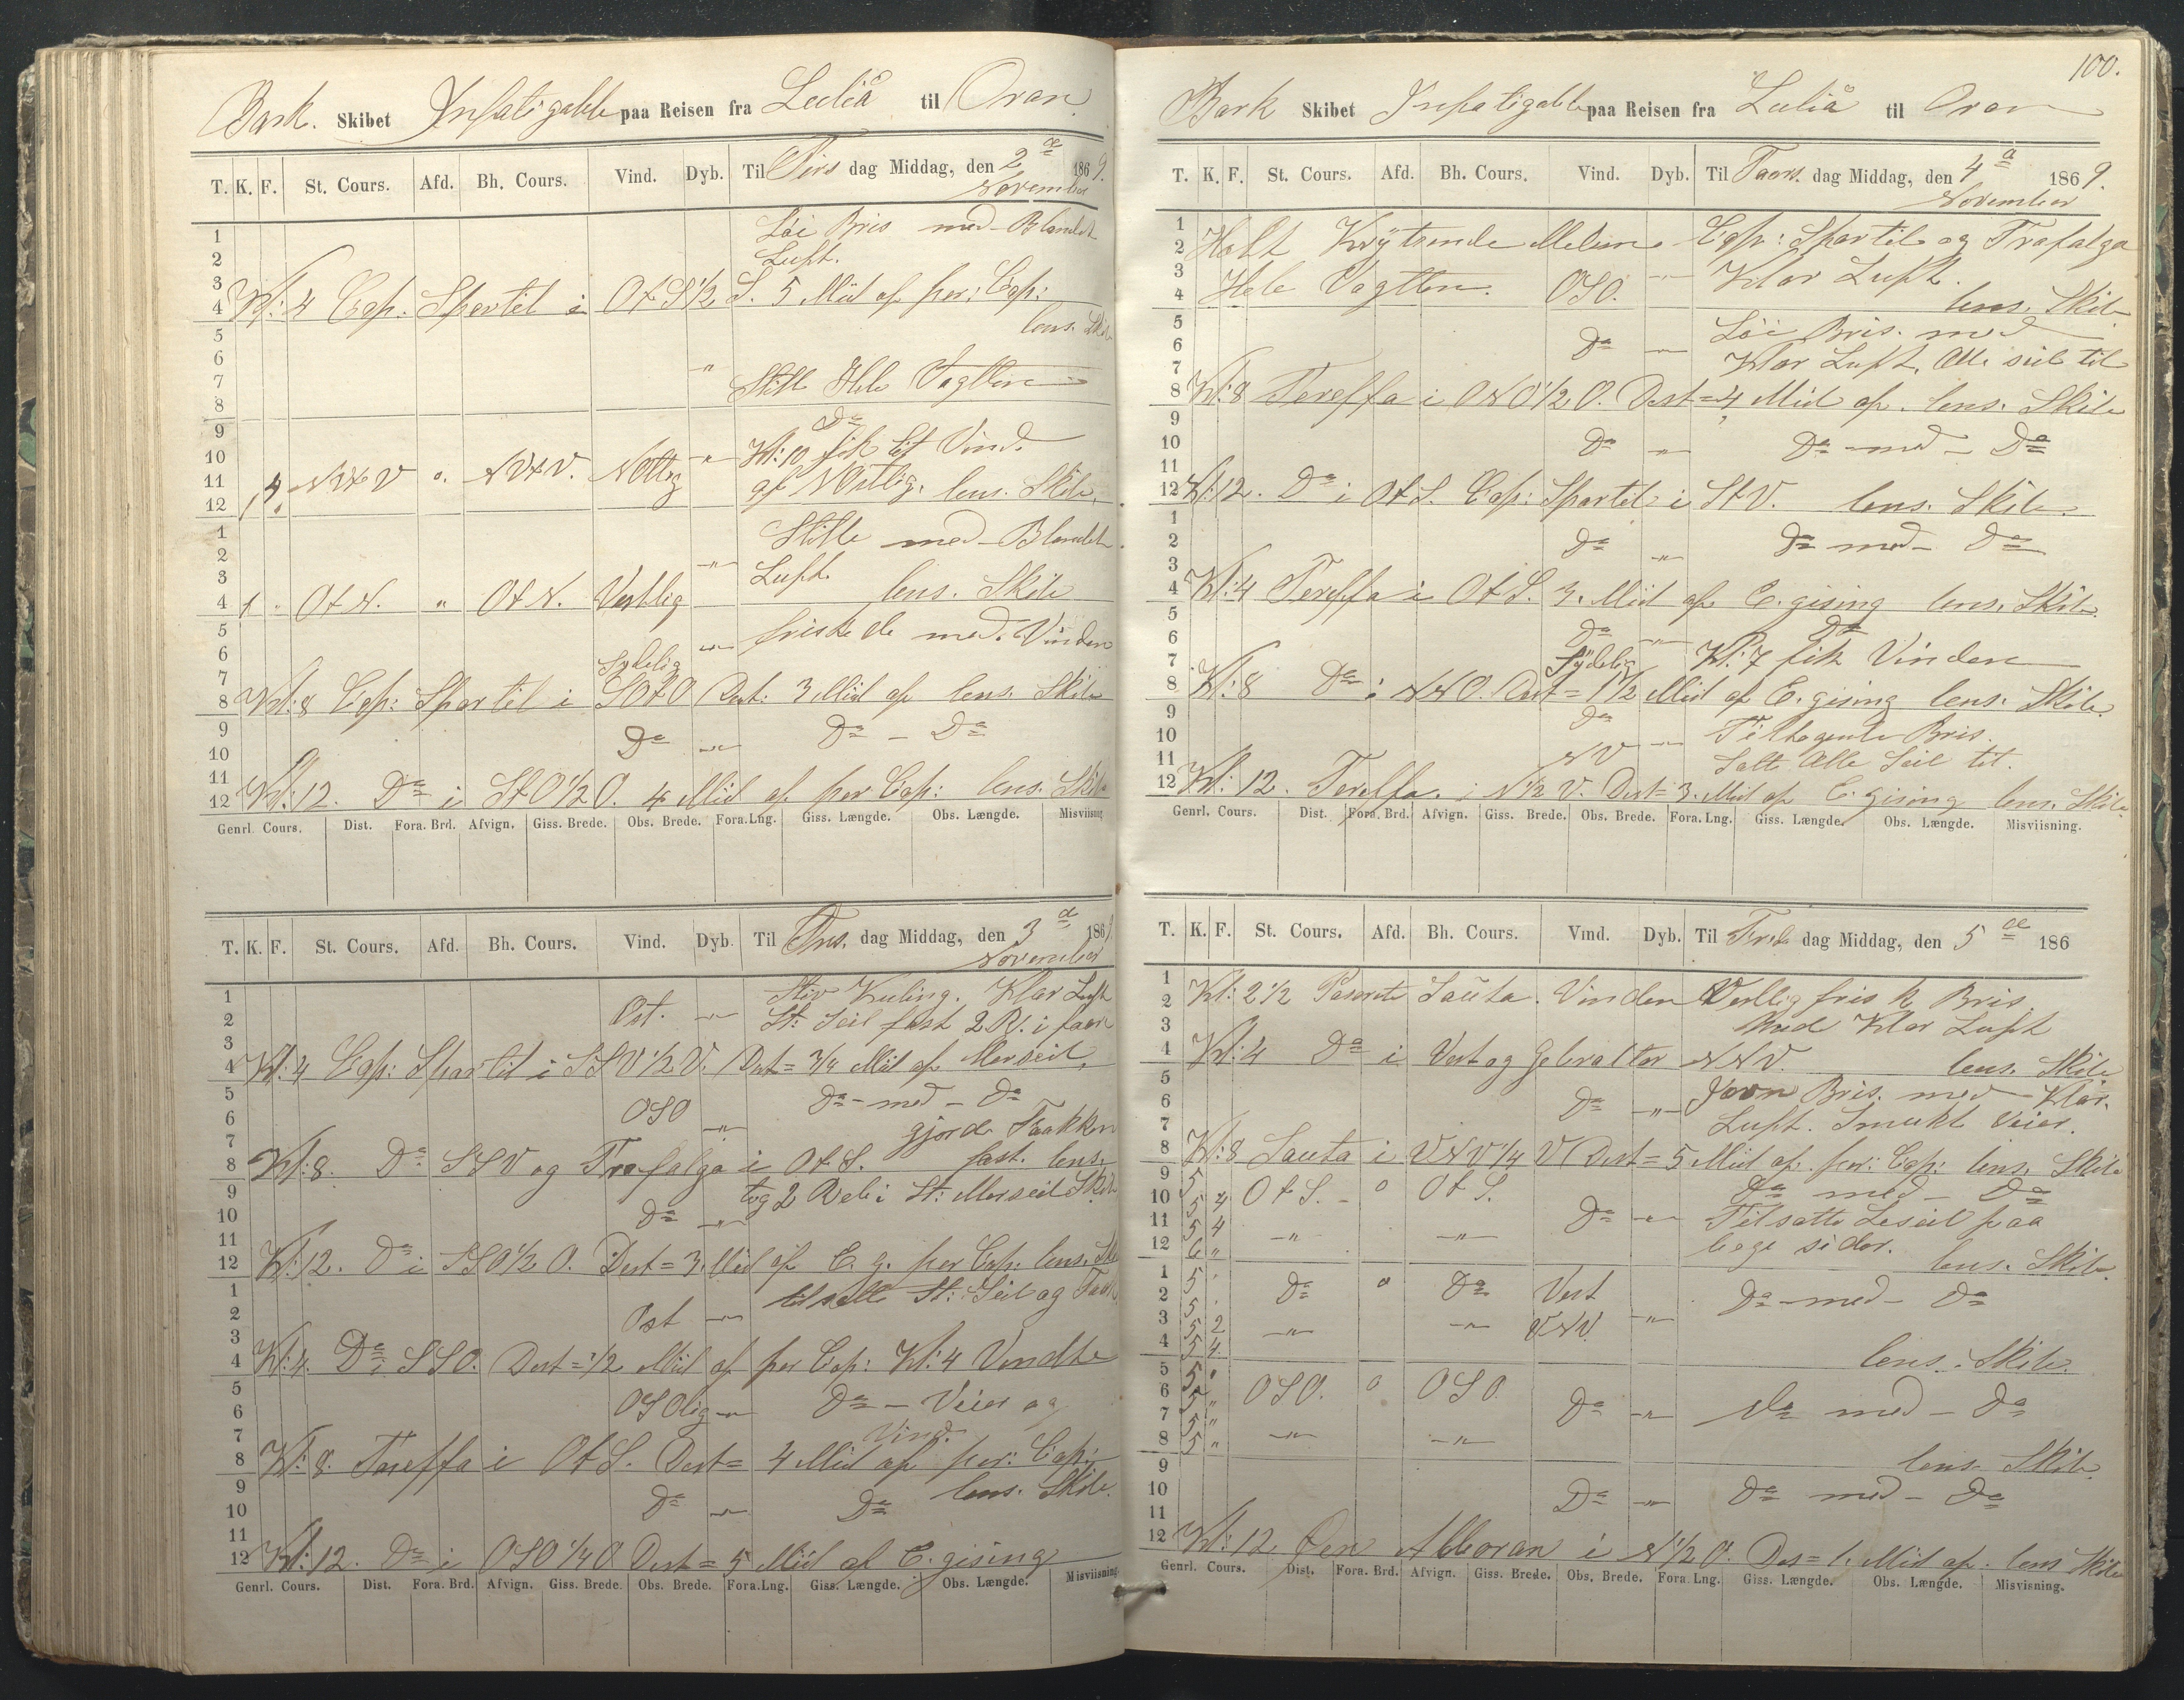 Bark. Skibet Infatigable paa Reisen fra Luleå til Oran
T. K. F. St. Cours. Afd. Bh. Cours. Vind. Dyb. Til Tirs dag Middag, den 2de 1869.
November
1
Löi Bris med Blandet
2
Luft.
3
4 Kl: 4 Cap. Spartel i OtS 1/2 S. 5 Miil af per: Cap:
lens. Skib
5
6
7 " Stille Hele Vagtten
8
9 Do
10 Kl: 10 fik let Vind
11 1 4 NVtV o. NVtV. NOttlig " af NOstlig. lens. Skib.
12
1 Stille med Blandet
2
3 " Luft.
4 1 " OtN. " OtN. Vestlig lens. Skib
5 friskede med Vinden
6 Sydelig "
7
8 Kl: 8 Cap: Spartel i SOtO Dist: 3 Miil af lens. Skib
9 Do " Do - Do
10
11
12 Kl: 12. Do i StO 1/2 O. 4 Miil af per Cap: lens. Skib
Genrl. Cours. Dist. Fora. Brd. Afvign. Giss. Brede. Obs. Brede. Fora. Lng. Giss. Længde. Obs. Længde. Misviisning
T. K. F. St. Cours. Afd. Bh. Cours. Vind. Dyb. Til Ons. dag Middag, den 3de 1869
November
1 Stiv Kuling. Klar Luft
2 Ost. " St: Seil fast 2 R. i faar
3
4 Kl: 4 Cap: Spartel i SSV 1/2 V. Dist = 3/4 Miil af Merseil,
5 Do - med - Do
6 OSO " gjorde Faakken
7
8 Kl: 8. Do SSV og Trafalga i OtS. fast. lens.
9 tog 2 Reb i St: Merseil Skib
10 Do "
11
12 Kl: 12. Do i SSO 1/2 O. Dist = 3. Miil af C. g. per Cap: lens. Ski
1 tilsatte St: Seil og Faak
2 Ost "
3
4 Kl: 4. Do i SSO. Dist = 1/2 Miil af per Cap: Kl: 4 Vendte
5 OSOlig " Do - Veier og
6
7 Vind.
8 Kl: 8. Tareffa i OtS. Dist = 4 Miil af per: Cap:
9 lens. Skib.
10 Do " Do
11
12 Kl: 12. Do i OSO 1/4 O. Dist = 5 Miil af C. gising
Genrl. Cours. Dist. Fora. Brd. Afvign. Giss. Brede. Obs. Brede. Fora. Lng. Giss. Længde. Obs. Længde. Misviisning
100.
Bark Skibet Infatigable paa Reisen fra Luleå til Oran
T. K. F. St. Cours. Afd. Bh. Cours. Vind. Dyb. Til Taars. dag Middag, den 4de 1869.
November
1
2 Holt Krÿtsende Melem Cap: Spartel og Trafalga
3 Hele Vagtten. OSO. " Klar Luft.
4 lens. Skib
5 Löi Bris. med
6 Do "
7 Klar Luft. Alle seil til
8 Kl: 8 Tareffa i ONO 1/2 O. Dist = 4 Miil af. lens. Skib
9
10 Do " Do - med - Do
11
12 Kl: 12. Do i OtS. Cap: Spartel i StV. lens. Skib.
1
2 Do " Do - med - Do
3
4 Kl: 4 Tareffa i OtS. 3. Miil af C. gising lens. Skib.
5
6 Do " Do
7 Sÿdelig Kl: 7 fik Vinden
8 Kl: 8 Do i NNO. Dist = 1 1/2 Miil af C. gising lens. Skib.
9 Do
10 " Tiltagende Bris.
11 NV Satte Alle Seil til.
12 Kl: 12. Tareffa. i N 1/2 V. Dist = 3. Miil af C. gising lens. Skib.
Genrl. Cours. Dist. Fora. Brd. Afvign. Giss. Brede. Obs. Brede. Fora. Lng. Giss. Længde. Obs. Længde. Misviisning.
T. K. F. St. Cours. Afd. Bh. Cours. Vind. Dyb. Til Fre dag Middag, den 5de 186
1
2 Kl: 2 1/2 Paserte Sauta. Vinden Vestlig frisk Bris.
3 Med Klar Luft
4 Kl: 4 Do i Vest og Gebraltar NNV. lens. Skib
5
6 Do " Jævn Bris. med Klar.
7 Luft. Smukt Veier.
8 Kl: 8 Sauta i VNV 1/4 V Dist = 5 Miil af per: Cap: lens. Skib
9 5 OtS. o OtS. Do med - Do
10 5 4 Do " Tilsatte Leseil paa
11 5 4 " "
12 6 " bege sider. lens. Skib.
1 5 Do o Do Vest Do - med - Do
2 5 "
3 5 2 " " VNV.
4 5 4 lens. Skib.
5 5 " OSO. o OSO.
6 5 " Do " Do med - Do
7 5 "
8 5 " " "
9 lens. Skib.
10 Do " Do med - Do
11
12 Kl: 12 Öen Alboran i N 1/2 O. Dis = 1. Miil af. lens Skib
Genrl. Cours. Dist. Fora. Brd. Afvign. Giss. Brede. Obs. Brede. Fora. Lng. Giss. Længde. Obs. Længde. Misvisning.